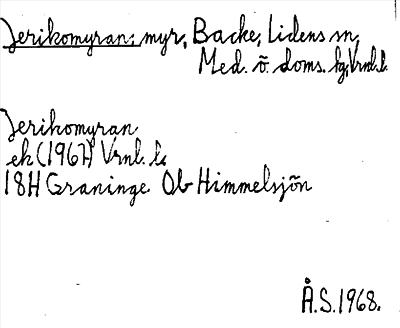 Jerikomyran; myr, Backe, Lidens sn,
Med. ö. doms. hg, Vrnl. l.
Jerikomyran
ek (1967) Vrnl. l.
18H Graninge Ob Himmelsjön
Å.S. 1968.